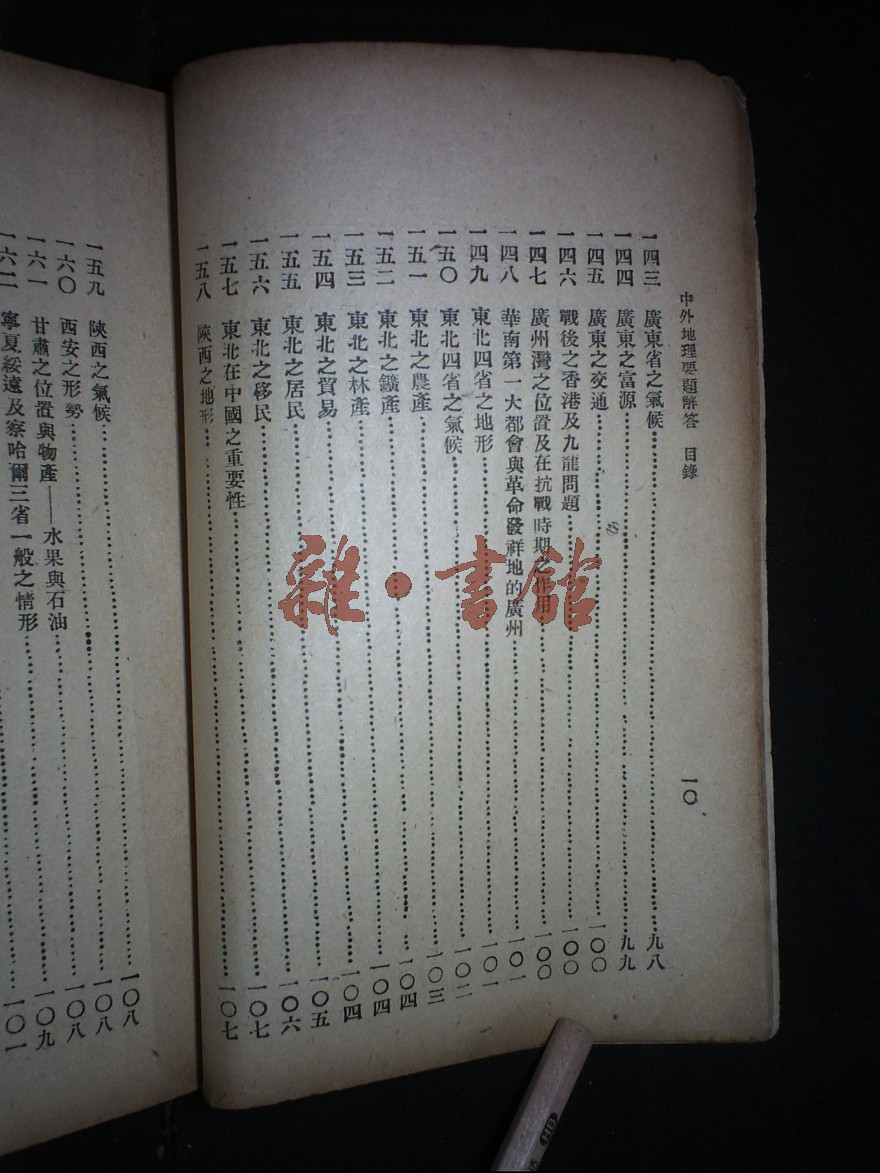 中外地理要題解答 目錄 一〇
一四三 廣東省之氣候 九八
一四四 廣東之富源 九九
一四五 廣東之交通 一〇〇
一四六 戰後之香港及九龍問題 一〇〇
一四七 廣州灣之位置及在抗戰時期之作用 一〇〇
一四八 華南第一大都會與革命發祥地的廣州 一〇一
一四九 東北四省之地形 一〇一
一五〇 東北四省之氣候 一〇二
一五一 東北之農產 一〇三
一五二 東北之鑛產 一〇四
一五三 東北之林產 一〇四
一五四 東北之貿易 一〇四
一五五 東北之居民 一〇五
一五六 東北之移民 一〇六
一五七 東北在中國之重要性 一〇七
一五八 陝西之地形 一〇七
一五九 陝西之氣候 一〇八
一六〇 西安之形勢 一〇八
一六一 甘肅之位置與物產——水果與石油 一〇八
一六二 寧夏綏遠及察哈爾三省一般之情形 一〇九
雜·書館
HB